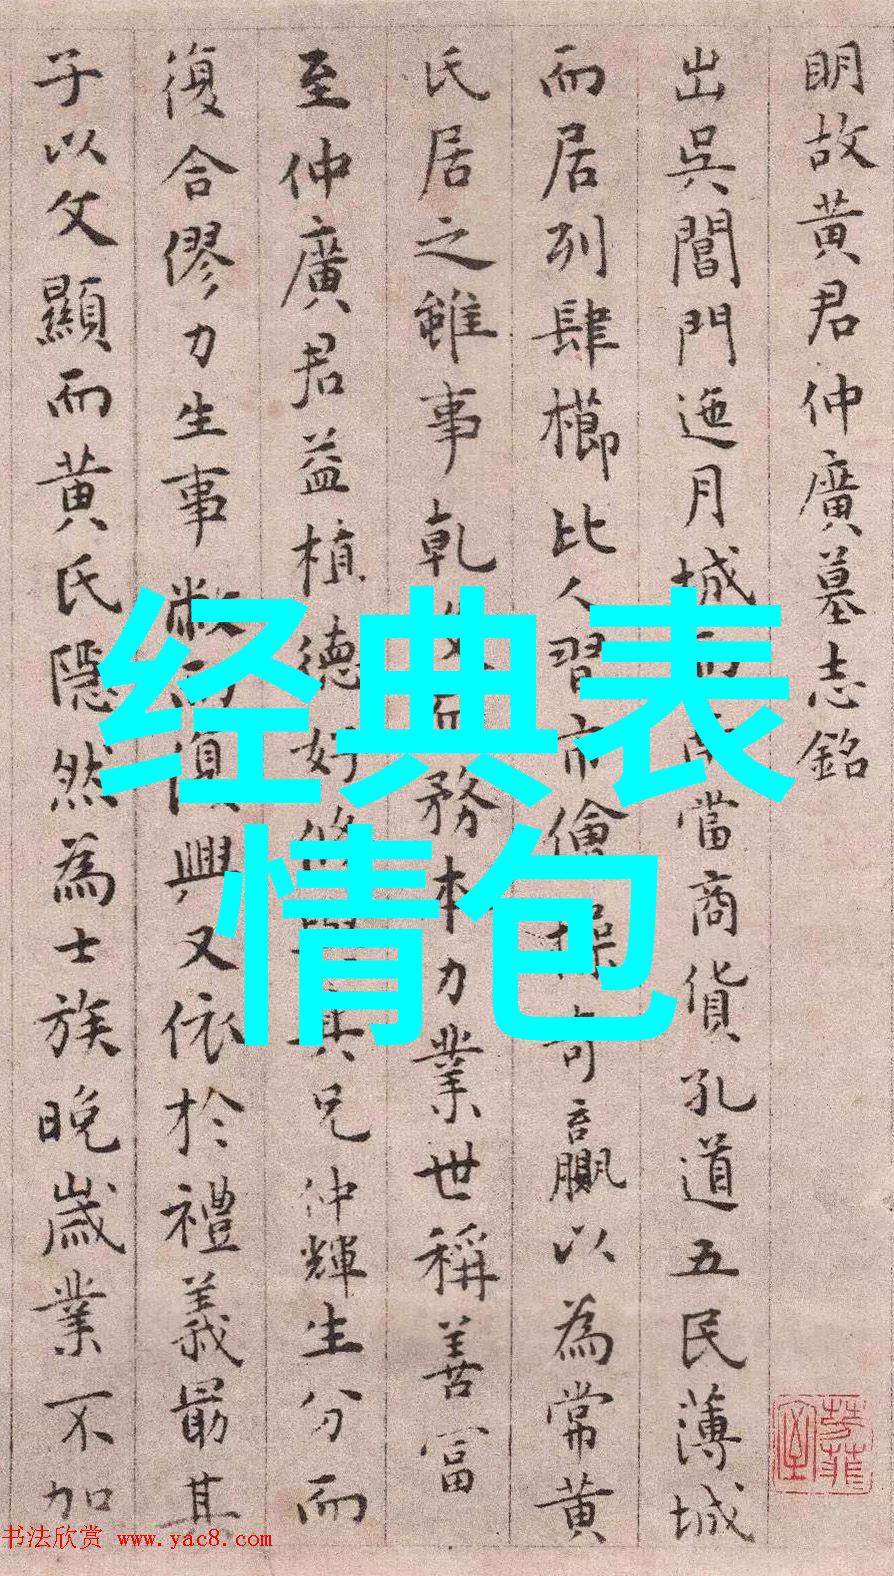 明故黄君仲廣墓志銘
出吳閶門迤月城而南當商貨孔道五民薄城
而居列肆櫛比人習市儈操奇贏以為常黄
氏居之雖事乾没而務本力業世稱善富
至仲廣君益植德好修與其兄仲輝生分而
復合僇力生事敝而復興又依於禮義最其
子以文顯而黄氏隱然為士族晚歲業不加
经典表
情包
书法欣赏 www.yac8.com